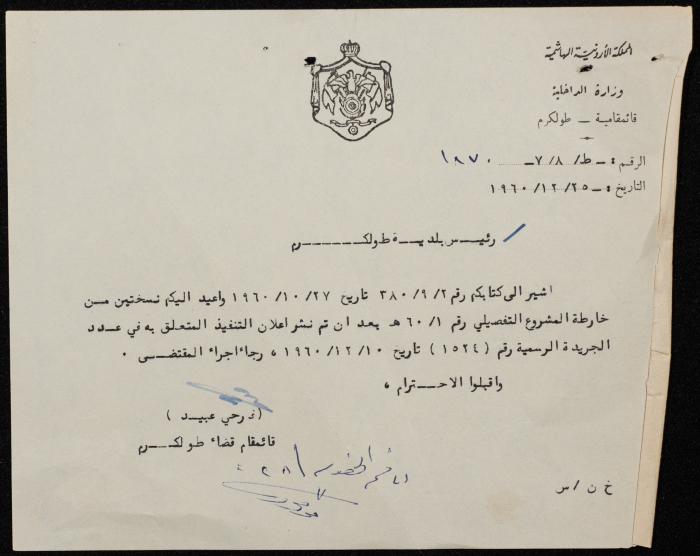 المملكة الأردنية الهاشمية
وزارة الداخلية
قائمقامية - طولكرم
الرقم : - ط/ ٧/٨ - ١٨٧٠
التاريخ : - ١٩٦٠/١٢/٢٥
رئيس بلدية طولكرم
اشير الى كتابكم رقم ٣٨٠/٩/٢ تاريخ ١٩٦٠/١٠/٢٧ واعيد اليكم نسختين من
خارطة المشروع التفصيلي رقم ٦٠/١ هـ بعد ان تم نشر اعلان التنفيذ المتعلق به في عدد
الجريدة الرسمية رقم (١٥٢٤) تاريخ ١٩٦٠/١٢/١٠ ، رجاء اجراء المقتضى ٠
واقبلوا الاحترام ،
(فرحي عبيد)
قائمقام قضاء طولكرم
٢٨
خ ن / س